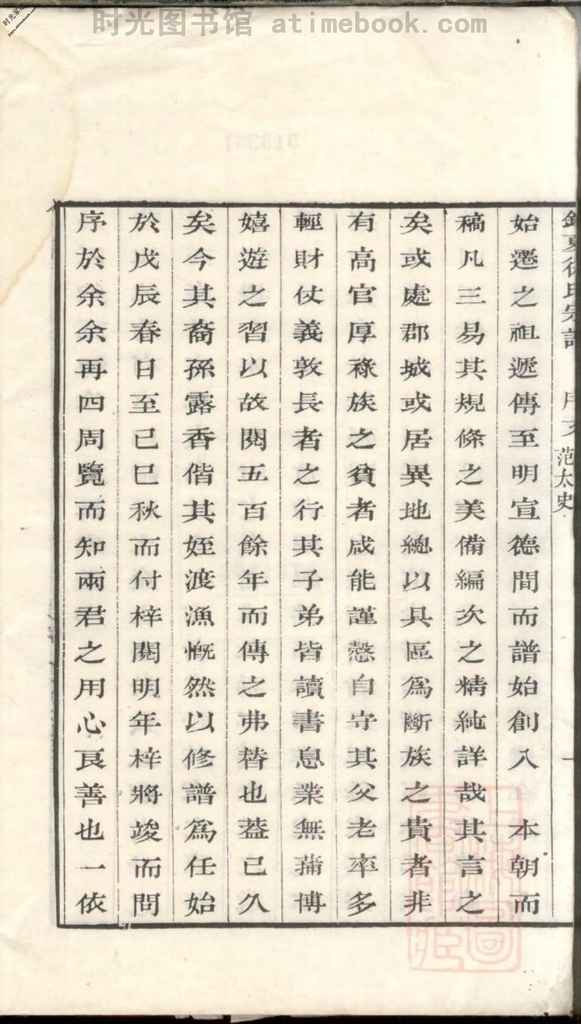 时光图书馆 atimebook.com
徐氏宗譜 序文 范太史 一
始遷之祖遞傳至明宣德間而譜始創入 本朝而
稿凡三易其規條之美備編次之精純詳哉其言之
矣或處郡城或居異地總以具區爲斷族之貴者非
有高官厚祿族之貧者咸能謹慤自守其父老率多
輕財仗義敦長者之行其子弟皆讀書息業無蒱博
嬉遊之習以故閱五百餘年而傳之弗替也蓋已久
矣今其裔孫露香偕其姪渡漁慨然以修譜爲任始
於戊辰春日至己巳秋而付梓閱明年梓將竣而問
序於余余再四周覽而知兩君之用心良善也一依